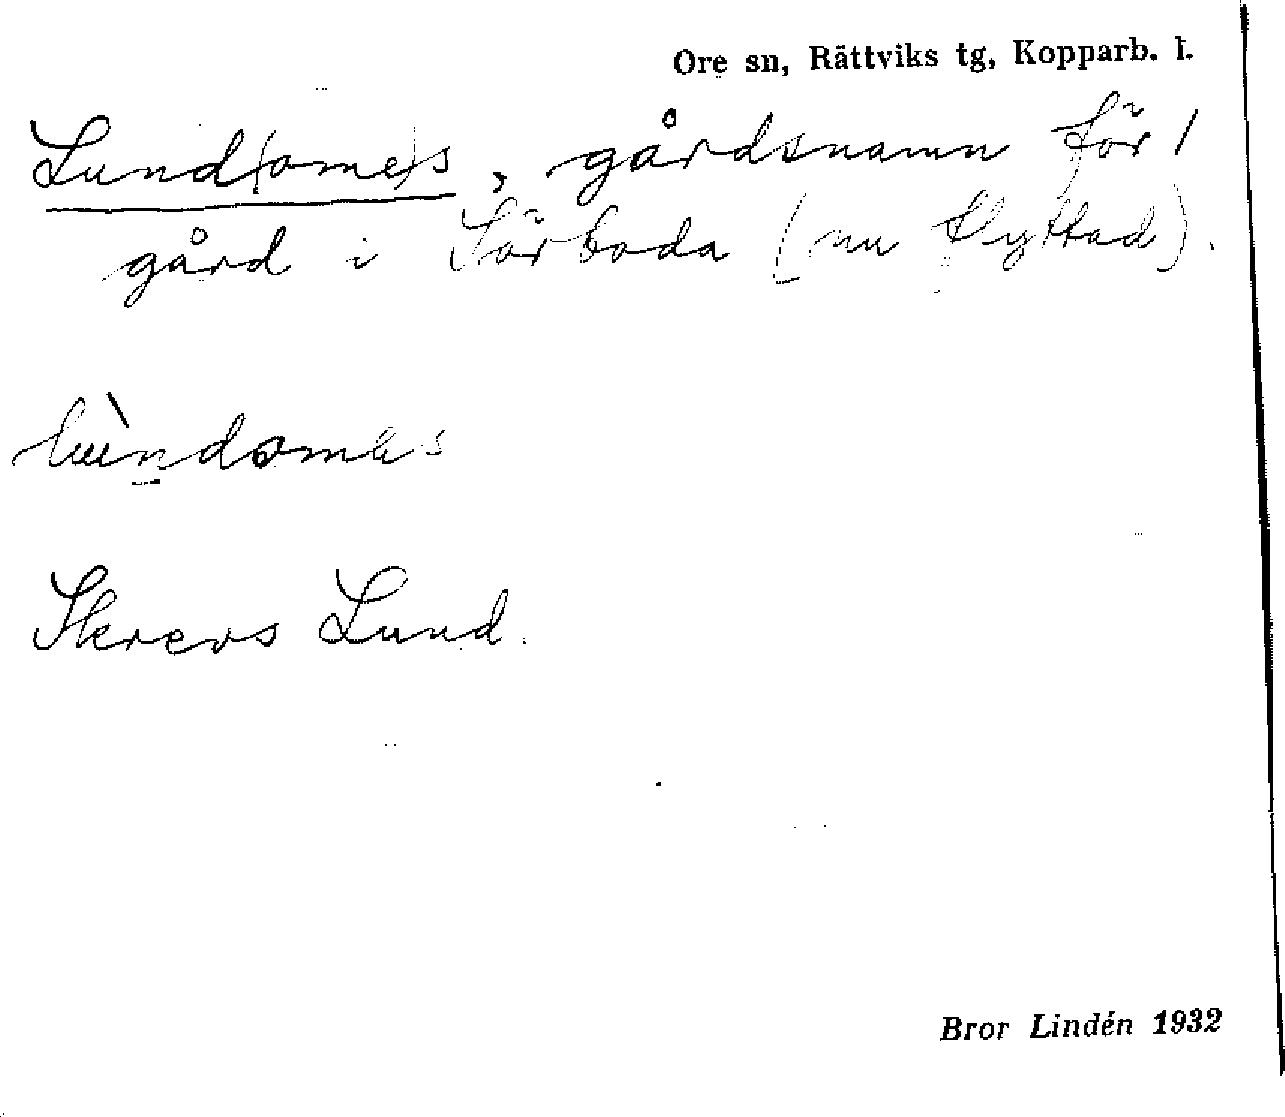 Ore sn, Rättviks tg, Kopparb. l.
Lund(ome)s, gårdsnamn för 1
gård i Sörboda (nu flyttad).
Skrevs Lund.
Bror Lindén 1932